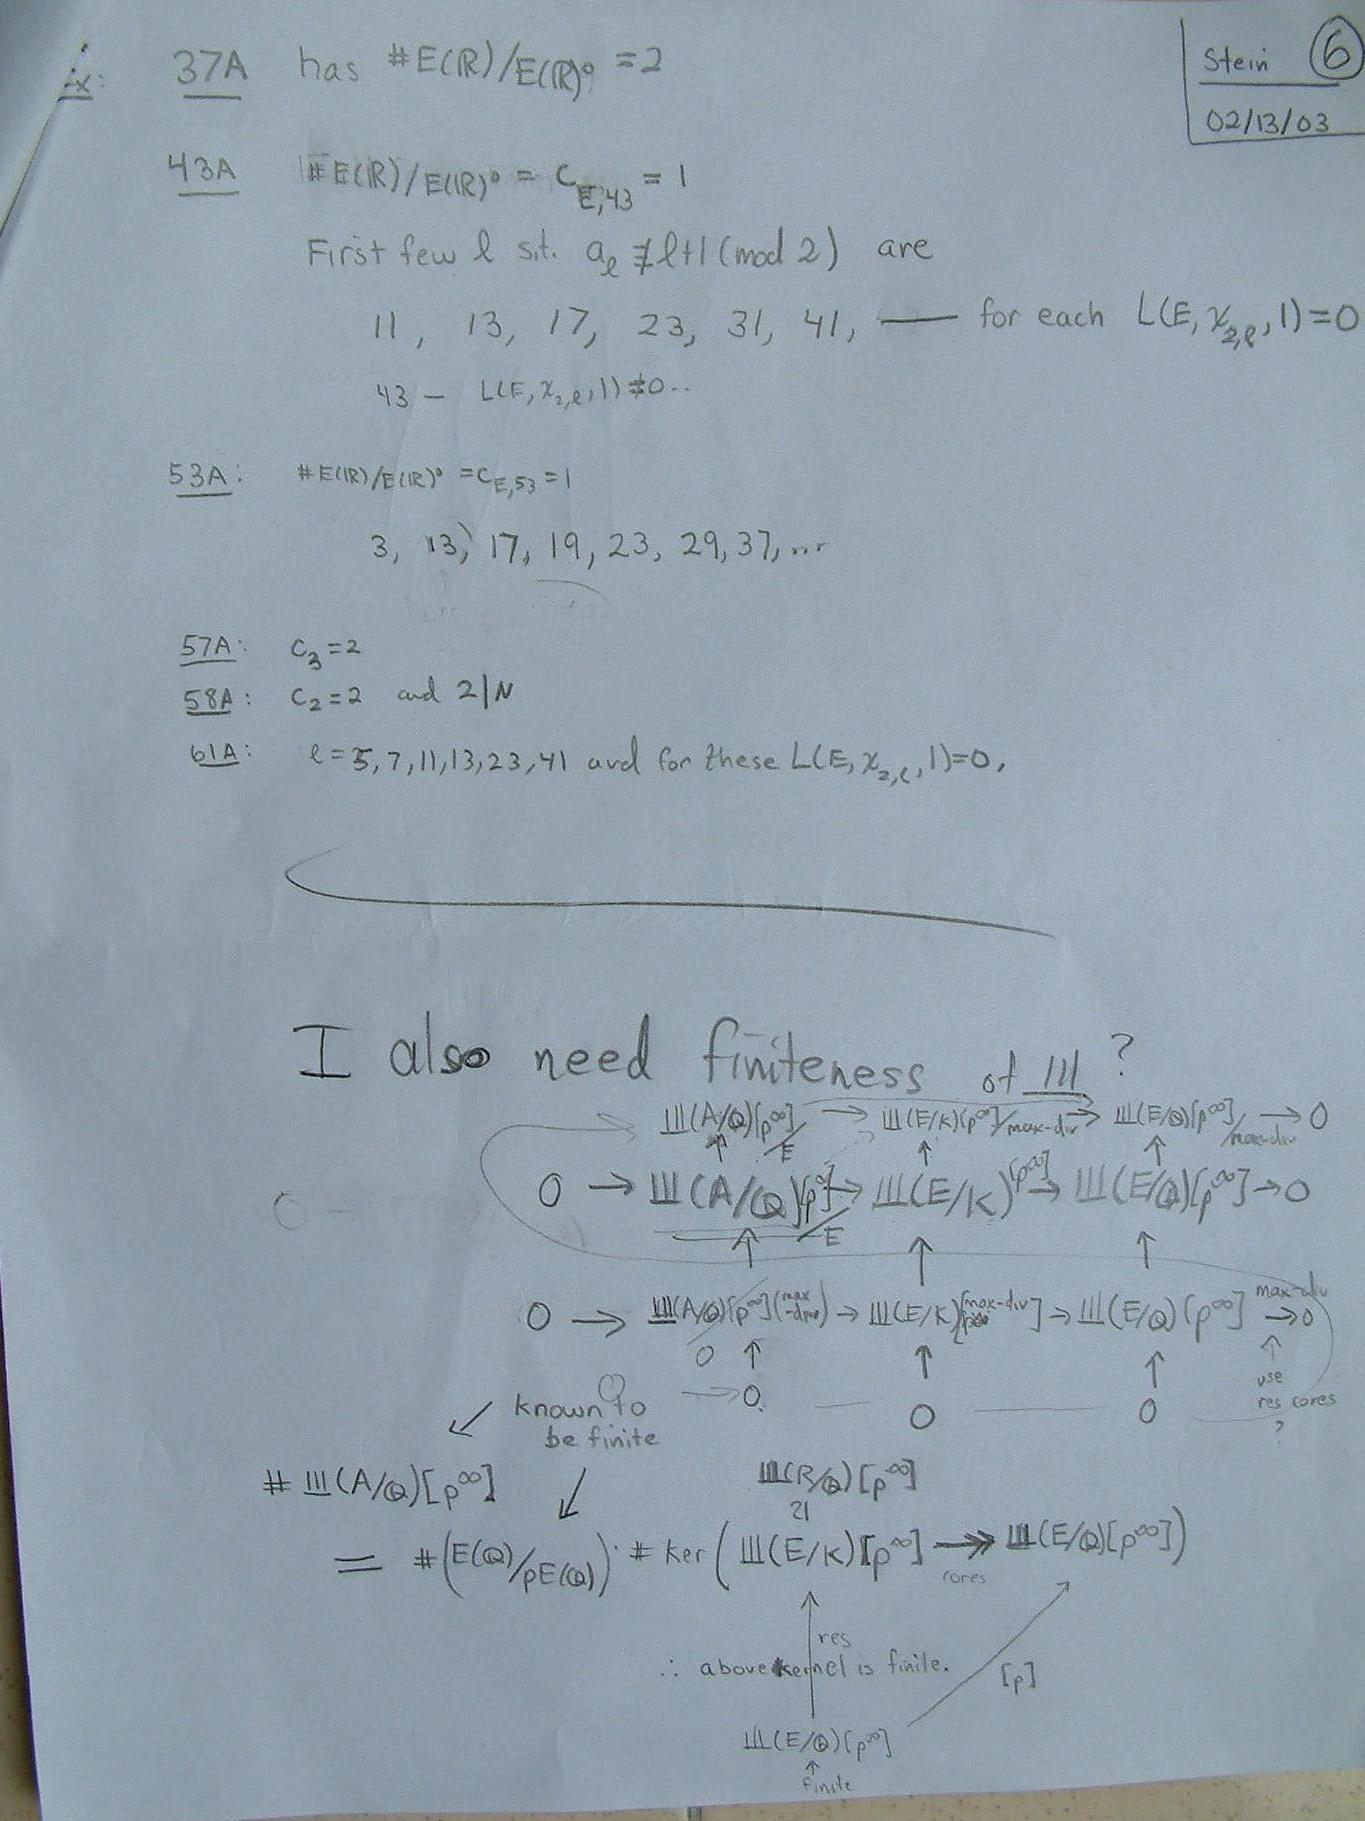 Ex: 37A has #E(ℝ)/E(ℝ)⁰ = 2
Stein 6
02/13/03
43A #E(ℝ)/E(ℝ)⁰ = c_{E,43} = 1
First few ℓ s.t. a_ℓ ≢ ℓ+1 (mod 2) are
11, 13, 17, 23, 31, 41, — for each L(E, χ_{2,ℓ}, 1)=0
43 – L(E, χ_{2,ℓ}, 1) ≠ 0 ..
53A: #E(ℝ)/E(ℝ)⁰ = c_{E,53} = 1
3, 13, 17, 19, 23, 29, 37, ...
57A: c_3 = 2
58A: c_2 = 2 and 2|N
61A: ℓ = 5, 7, 11, 13, 23, 41 and for these L(E, χ_{2,ℓ}, 1)=0,
I also need finiteness of Ш ?
Ш(A/ℚ)[p^∞]/E → Ш(E/K)[p^∞]/max-div → Ш(E/ℚ)[p^∞]/max-div → 0
0 → Ш(A/ℚ)[p^∞]/E → Ш(E/K)[p^∞] → Ш(E/ℚ)[p^∞] → 0
0 → Ш(A/ℚ)[p^∞](max-div) → Ш(E/K)[max-div] → Ш(E/ℚ)[p^∞] max-div → 0
0
use
res cores
?
0 0 0
known to
be finite
#Ш(A/ℚ)[p^∞]
Ш(R/ℚ)[p^∞]
≅
= #(E(ℚ)/pE(ℚ)) · # ker (Ш(E/K)[p^∞] ↠ Ш(E/ℚ)[p^∞])
cores
res
∴ above kernel is finite.
[p]
Ш(E/ℚ)[p^∞]
↑
finite